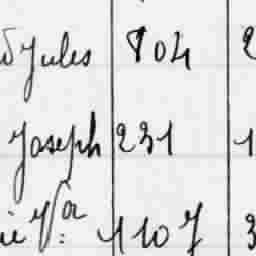 Jules 804 2
Joseph 231 1
1107 3